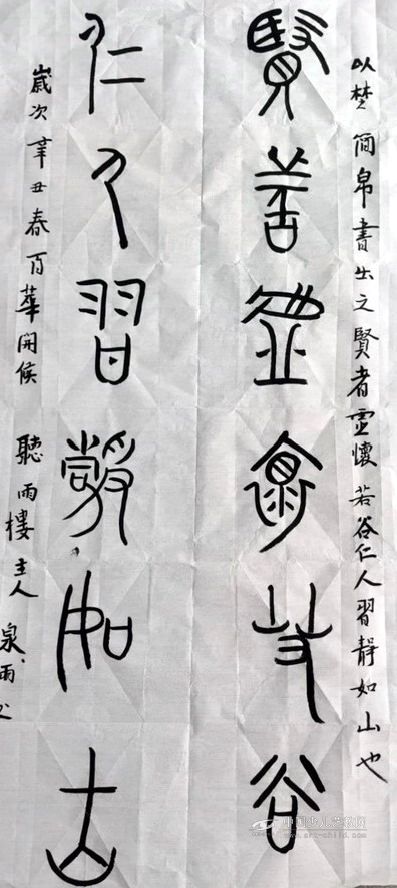 以楚简帛書出之賢者虛懷若谷仁人習靜如山也
賢者虛懷若谷
仁人習靜如山
歲次辛丑春百華開候 聽雨樓主人泉雨
www.art-child.com